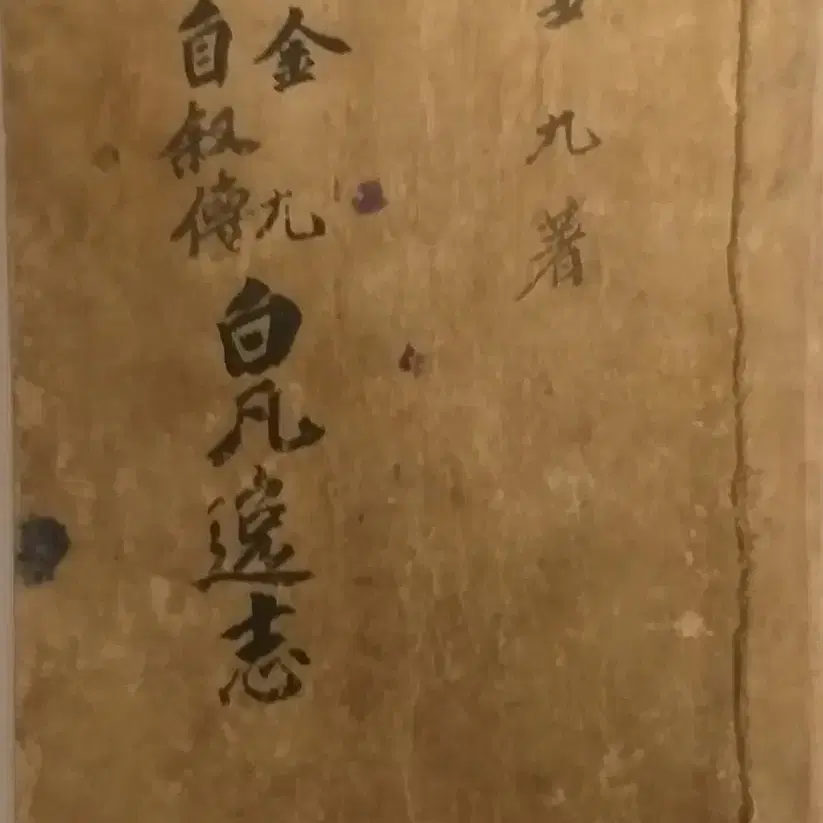 九著
金九
自叙傳
白凡逸志